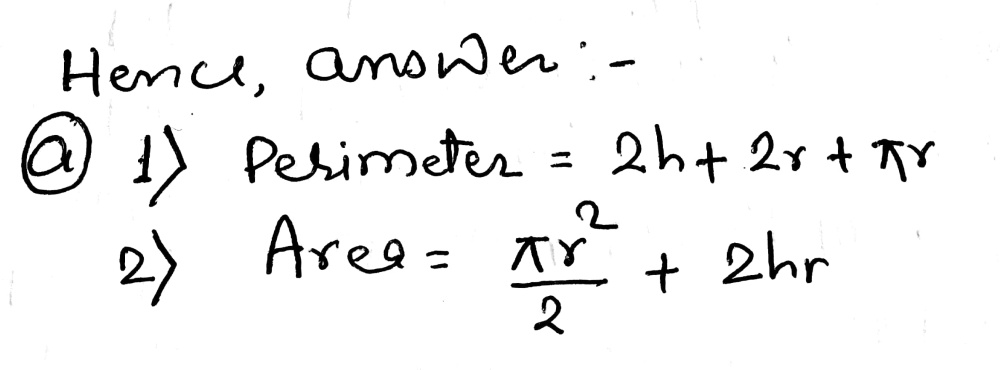 Hence, answer :-
ⓐ 1) Perimeter = 2h + 2r + πr
2) Area = πr²/2 + 2hr